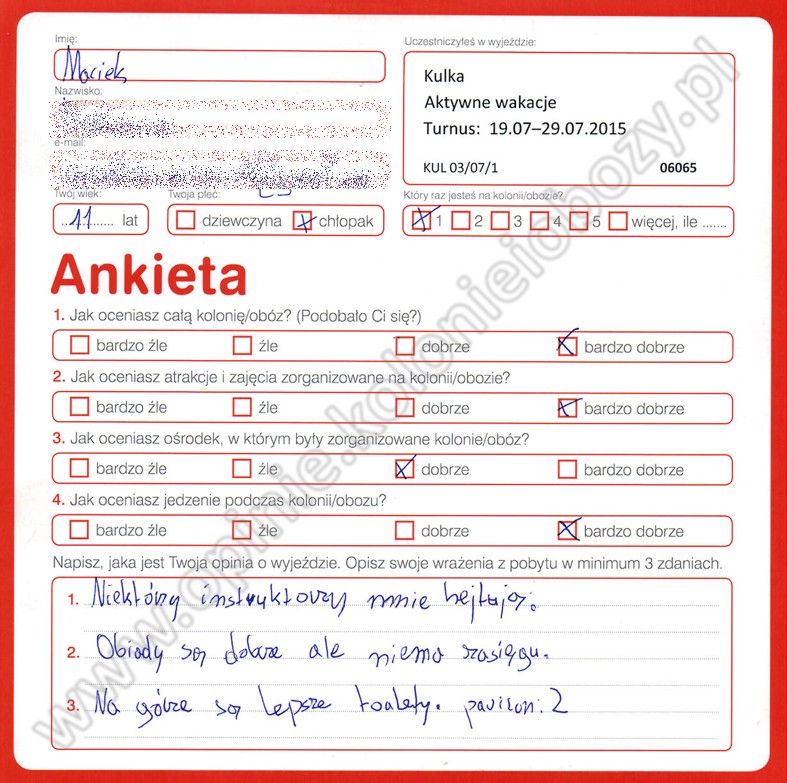 Imię:
Uczestniczyłeś w wyjeździe:
Maciek
Kulka
Nazwisko:
Aktywne wakacje
Turnus: 19.07–29.07.2015
e-mail:
KUL 03/07/1 06065
Twój wiek: Twoja płeć: Który raz jesteś na kolonii/obozie?
11 lat dziewczyna x chłopak x 1 2 3 4 5 więcej, ile .......
Ankieta
1. Jak oceniasz całą kolonię/obóz? (Podobało Ci się?)
bardzo źle źle dobrze x bardzo dobrze
2. Jak oceniasz atrakcje i zajęcia zorganizowane na kolonii/obozie?
bardzo źle źle dobrze x bardzo dobrze
3. Jak oceniasz ośrodek, w którym były zorganizowane kolonie/obóz?
bardzo źle źle x dobrze bardzo dobrze
4. Jak oceniasz jedzenie podczas kolonii/obozu?
bardzo źle źle dobrze x bardzo dobrze
Napisz, jaka jest Twoja opinia o wyjeździe. Opisz swoje wrażenia z pobytu w minimum 3 zdaniach.
1. Niektórzy instruktorzy mnie hejtują.
2. Obiady są dobrze ale niema zasięgu.
3. Na górze są lepsze toalety. pawilon: 2
www.opinie.kolonieiobozy.pl